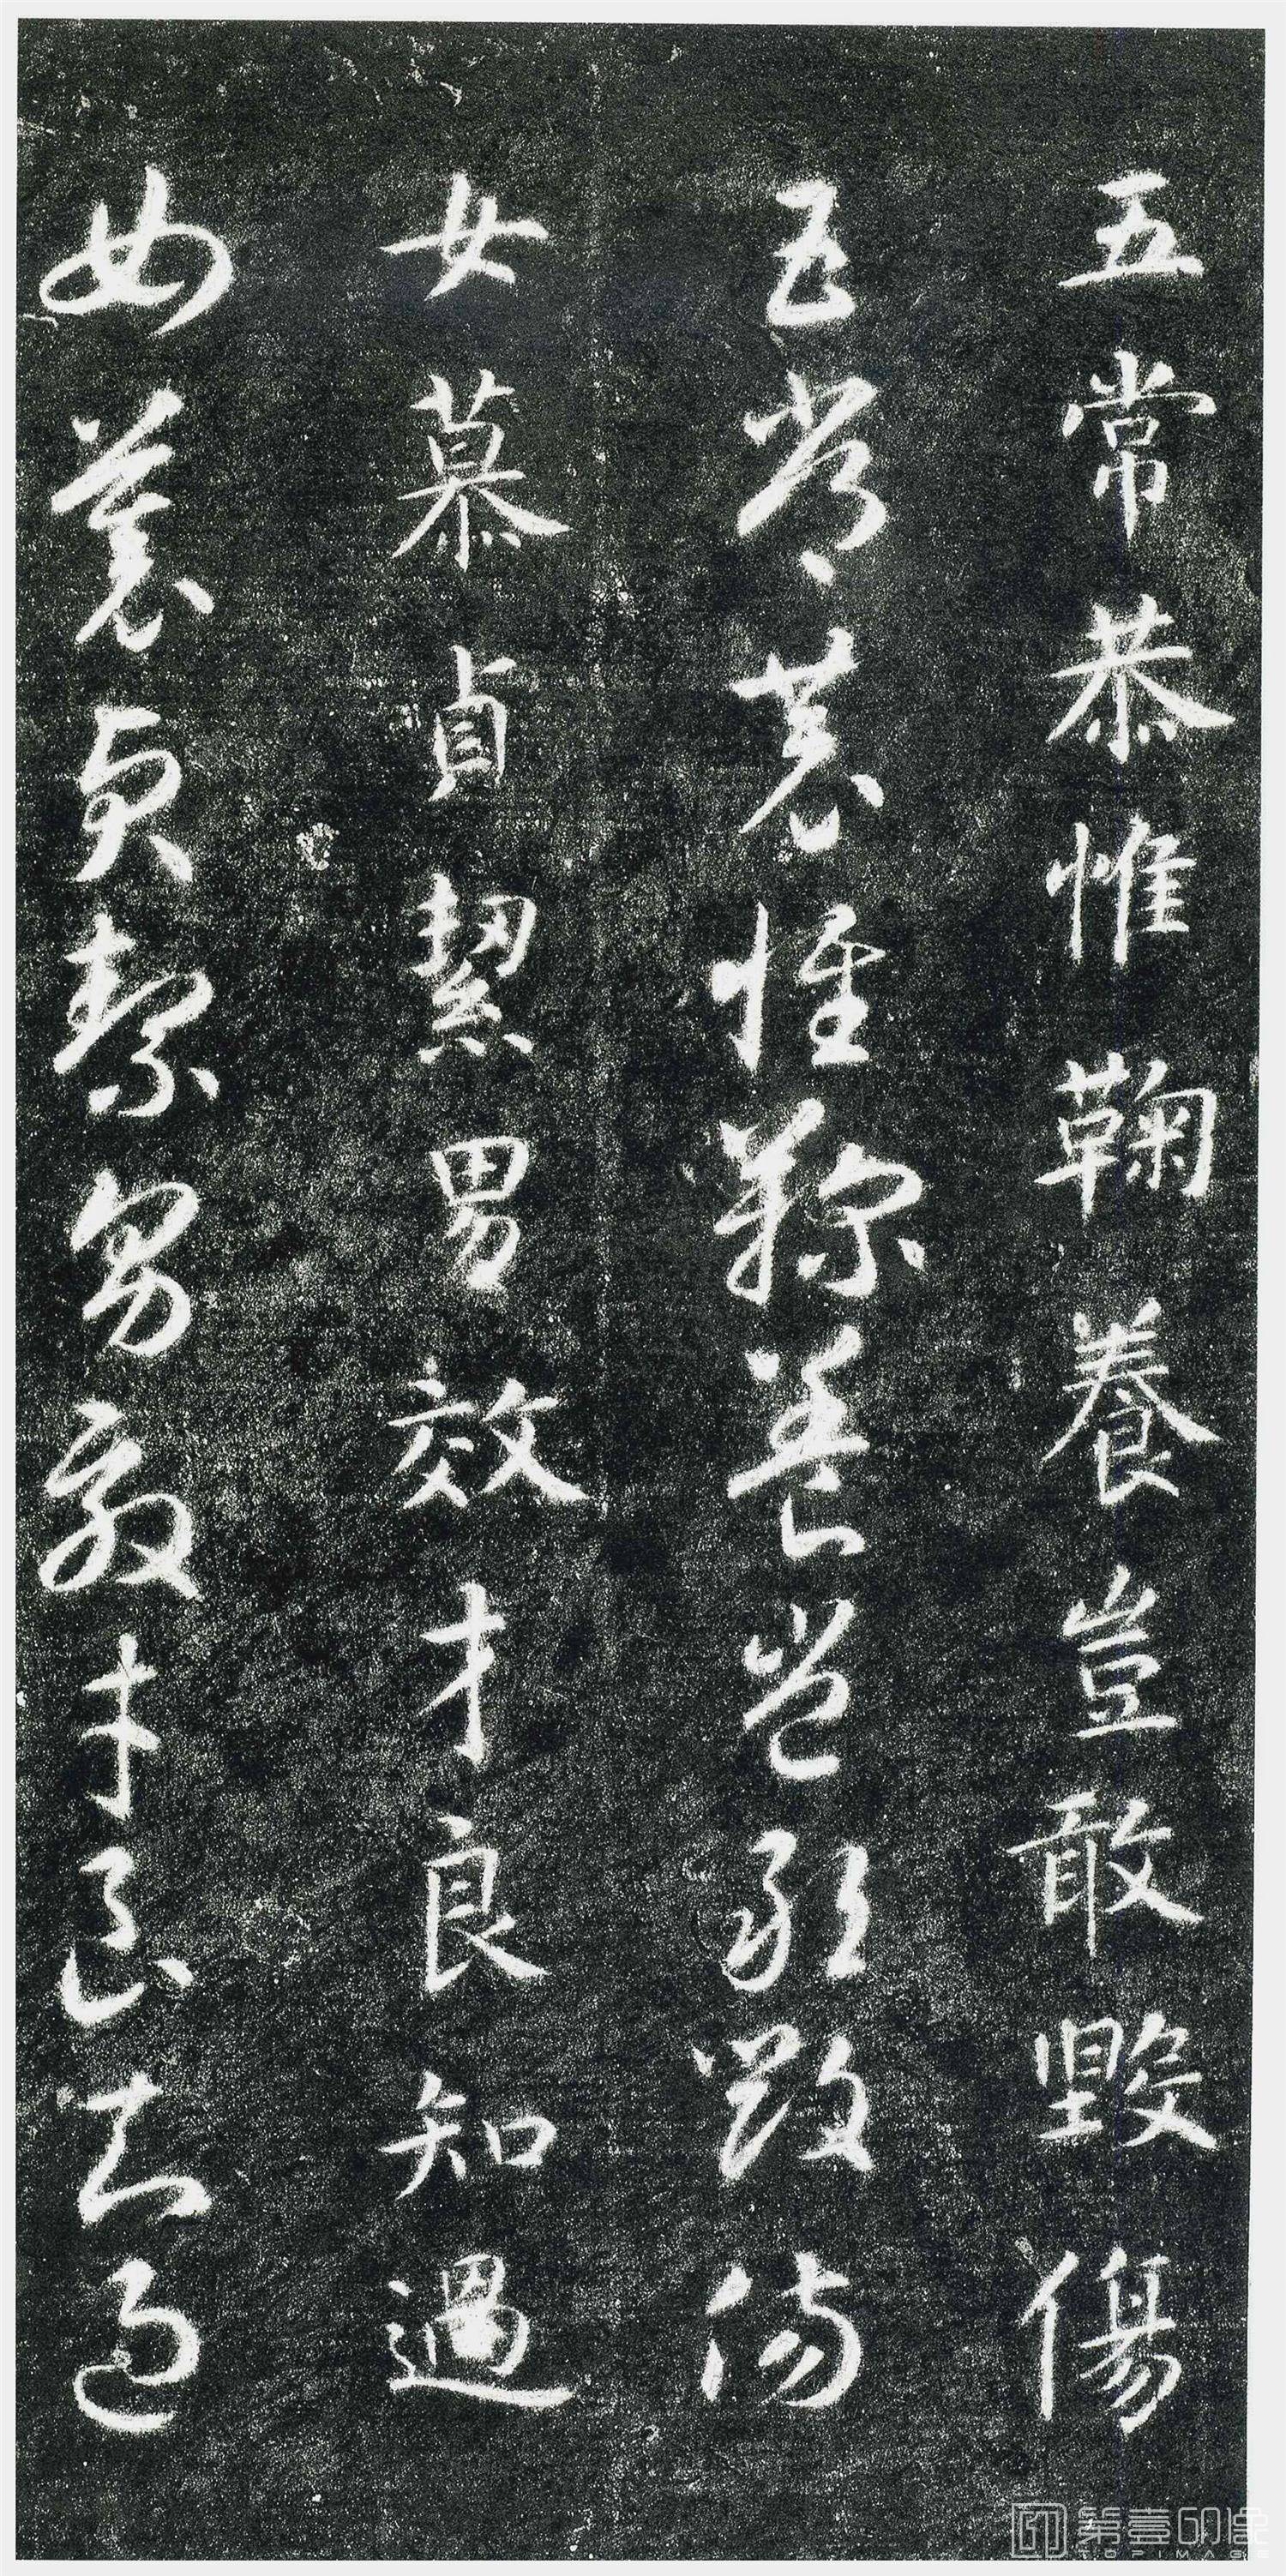 五常恭惟鞠養豈敢毀傷
五常恭惟鞠養豈敢毀傷
女慕貞絜男效才良知過
女慕貞絜男效才良知過
第壹印像
TOPIMAGE